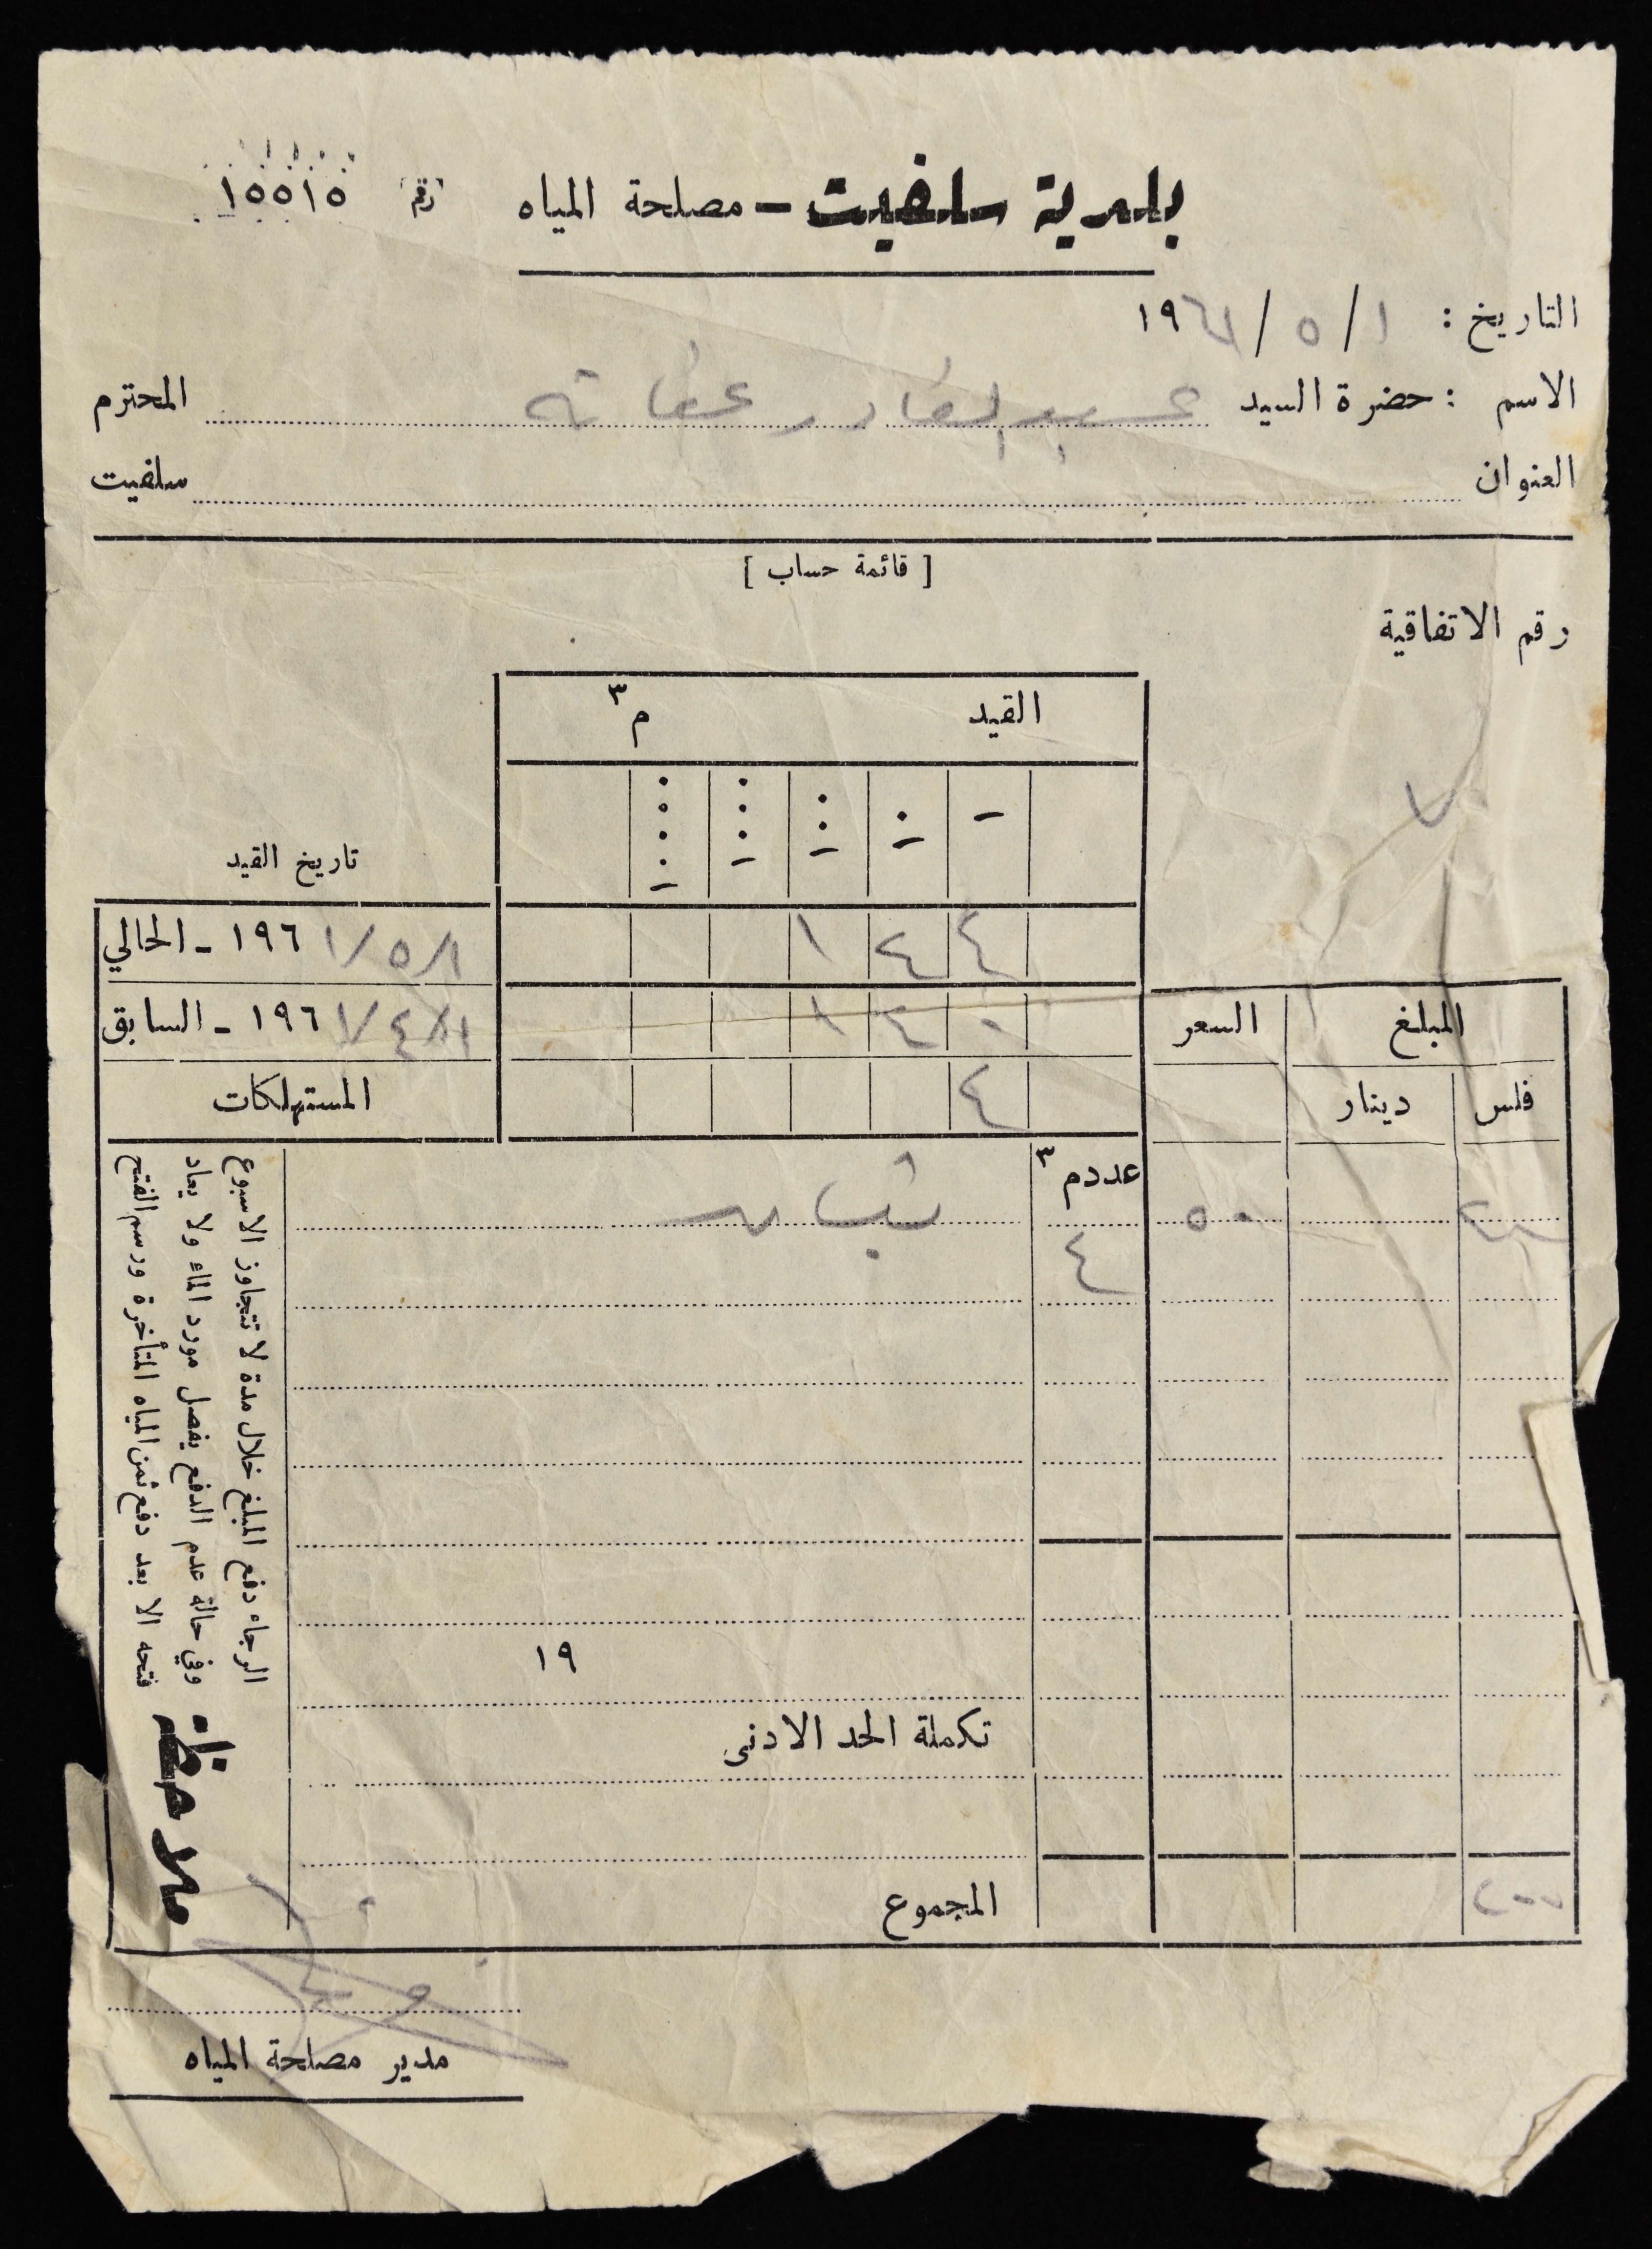 بلدية سلفيت - مصلحة المياه رقم ١٥٥١٥
التاريخ : ١ / ٥ / ١٩٦١
الاسم : حضرة السيد عبد القادر عفانة المحترم
العنوان سلفيت
[ قائمة حساب ]
رقم الاتفاقية
القيد م٣
٧
تاريخ القيد
٤ ٤ ١ ١/٥/١ ١٩٦ - الحالي
٠ ٤ ١ ١/٤/١ ١٩٦ - السابق
٤ المستهلكات
المبلغ السعر
فلس دينار
عدد م٣
٢٠٠ ٥٠ ٤ نيسان
١٩
تكملة الحد الادنى
المجموع ٢٠٠
ملاحظة
الرجاء دفع المبلغ خلال مدة لا تتجاوز الاسبوع
وفي حالة عدم الدفع يفصل مورد الماء ولا يعاد
فتحه الا بعد دفع ثمن المياه المتأخرة ورسم الفتح
مدير مصلحة المياه